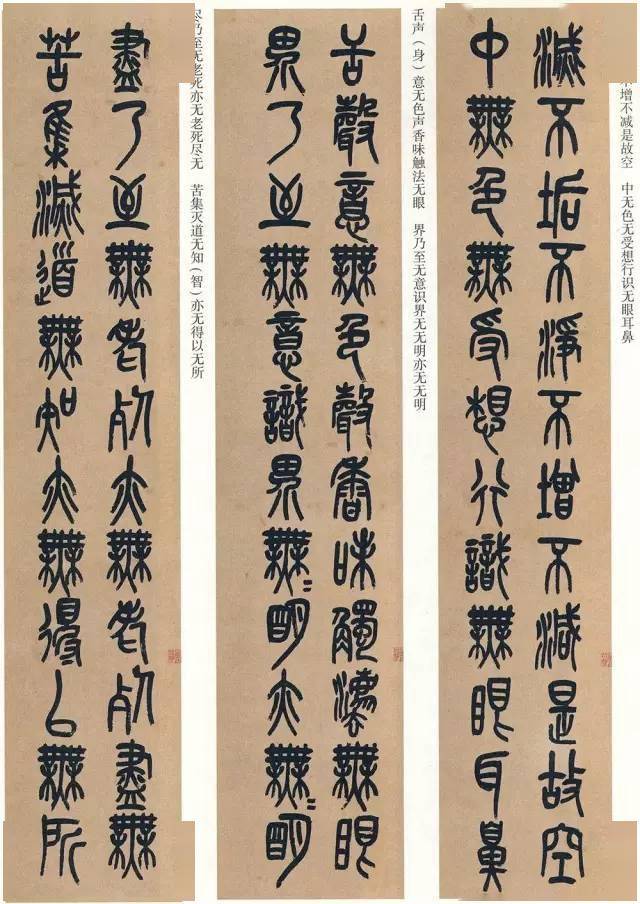 增不减是故空　中无色无受想行识无眼耳鼻
滅不垢不淨不增不減是故空
中無色無受想行識無眼耳鼻
舌声（身）意无色声香味触法无眼　界乃至无意识界无无明亦无无明
舌聲意無色聲香味觸灋無眼
界乃至無意識界無=明亦無=明
尽乃至无老死亦无老死尽无　苦集灭道无知（智）亦无得以无所
盡乃至無老死亦無老死盡無
苦集滅道無知亦無得以無所